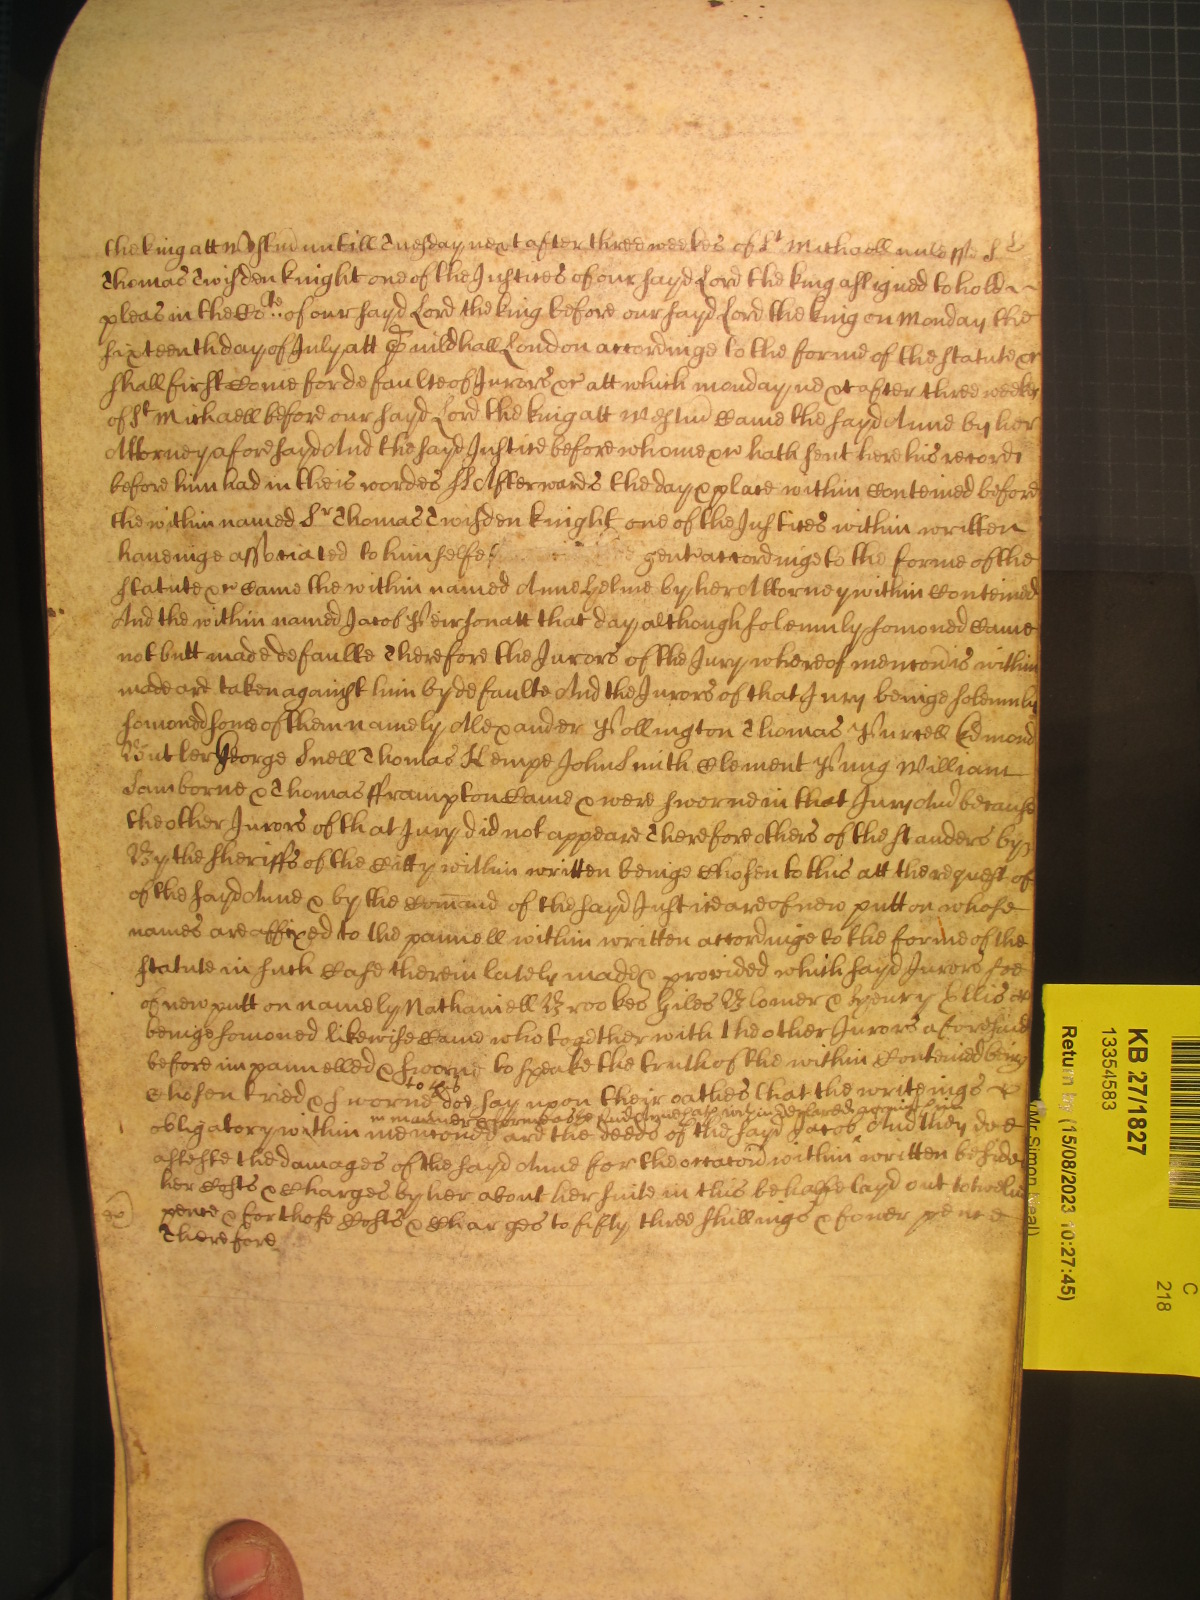 the king att Westm̄ untill Tuesday next after three weekes of St Michaell unlesse Sr
Thomas Twisden knight one of the Justices of our sayd Lord the king assigned to hold
pleas in the Cote of our sayd Lord the king before our sayd Lord the king on Monday the
sixteenth day of July att Guildhall London accordinge to the forme of the statute &c
shall first Come for defaulte of Jurors &c att which monday next after three weekes
of St Michaell before our sayd Lord the king att Westm̄ Came the sayd Anne by her
Attorney aforesayd And the sayd Justice before whome &c hath sent here his record
before him had in theis wordes ss Afterwards the day & place within Conteined before
the within named Sr Thomas Twisden knight one of the Justices within written
haveinge associated to himselfe gent accordinge to the forme of the
statute &c Came the within named Anne Helme by her Attorney within Conteined
And the within named Jacob Peirson att that day although solemnly somoned Came
not butt made defaulte Therefore the Jurors of the Jury whereof mencōn is within
made are taken against him by defaulte And the Jurors of that Jury beinge solemnly
somoned some of them namely Alexander Pollington Thomas Purcell Edmond
Butler George Snell Thomas Kempe John Smith Clement Pung William
Samborne & Thomas fframpton Came & were sworne in that Jury And because
the other Jurors of that Jury did not appeare Therefore others of the standers by
By the sheriffs of the Citty within written beinge Chosen to this att the request of
of the sayd Anne & by the Com̄and of the sayd Justice are of new putt on whose
names are affixed to the pannell within written accordinge to the forme of the
statute in such Case therein lately made & provided which sayd Jurors soe
of new putt on namely Nathaniell Brookes Giles Blomer & Henry Ellis &c
beinge somoned likewise Came who together with the other Jurors aforesaid
before impannelled & sworne to speake the truth of the within Conteined being
Chosen tried & sworne doe say upon their oathes that the writeings
in manner & forme as the sayd Anne hath within declared against him
obligatory within mencōned are the deeds of the sayd Jacob And they doe
assesse the damages of the sayd Anne for the occacōn within written besides
her Costs & Charges by her about her suite in this behalfe layd out to twelve
pence & for those Costs & Charges to fifty three shillings & fower pence
Therefore
KB 27/1827
13354583
Return by (15/08/2023 10:27:45)
(Mr Simon Neal)
C
218